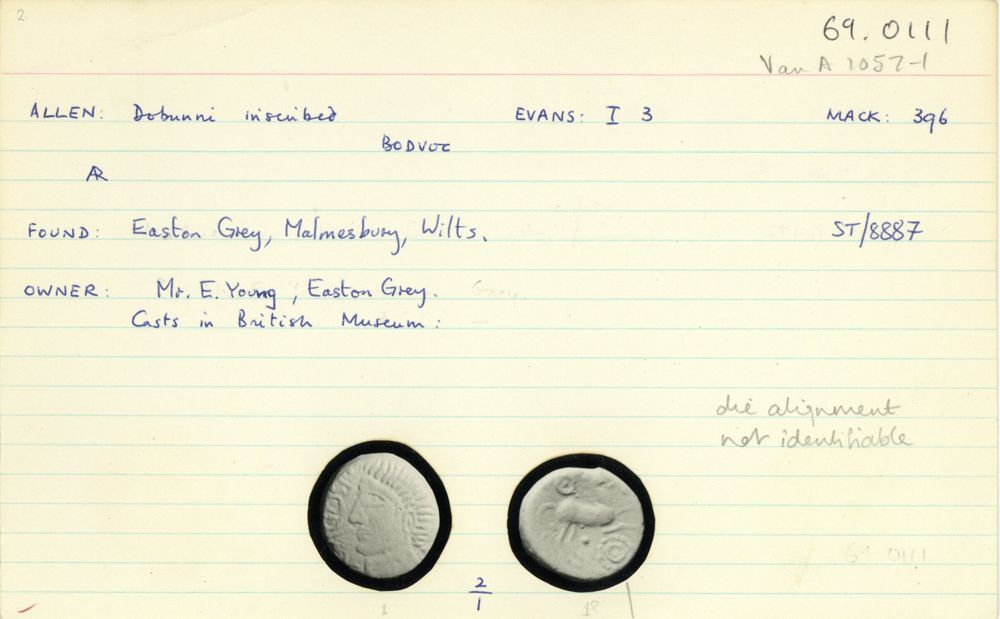 2
69.0111
Van A 1057-1
ALLEN: Dobunni inscribed EVANS: I 3 MACK: 396
BODVOC
AR
FOUND: Easton Grey, Malmesbury, Wilts. ST/8887
OWNER: Mr. E. Young, Easton Grey. Grey.
Casts in British Museum:
die alignment
not identifiable
69.0111
2
1
1 1?